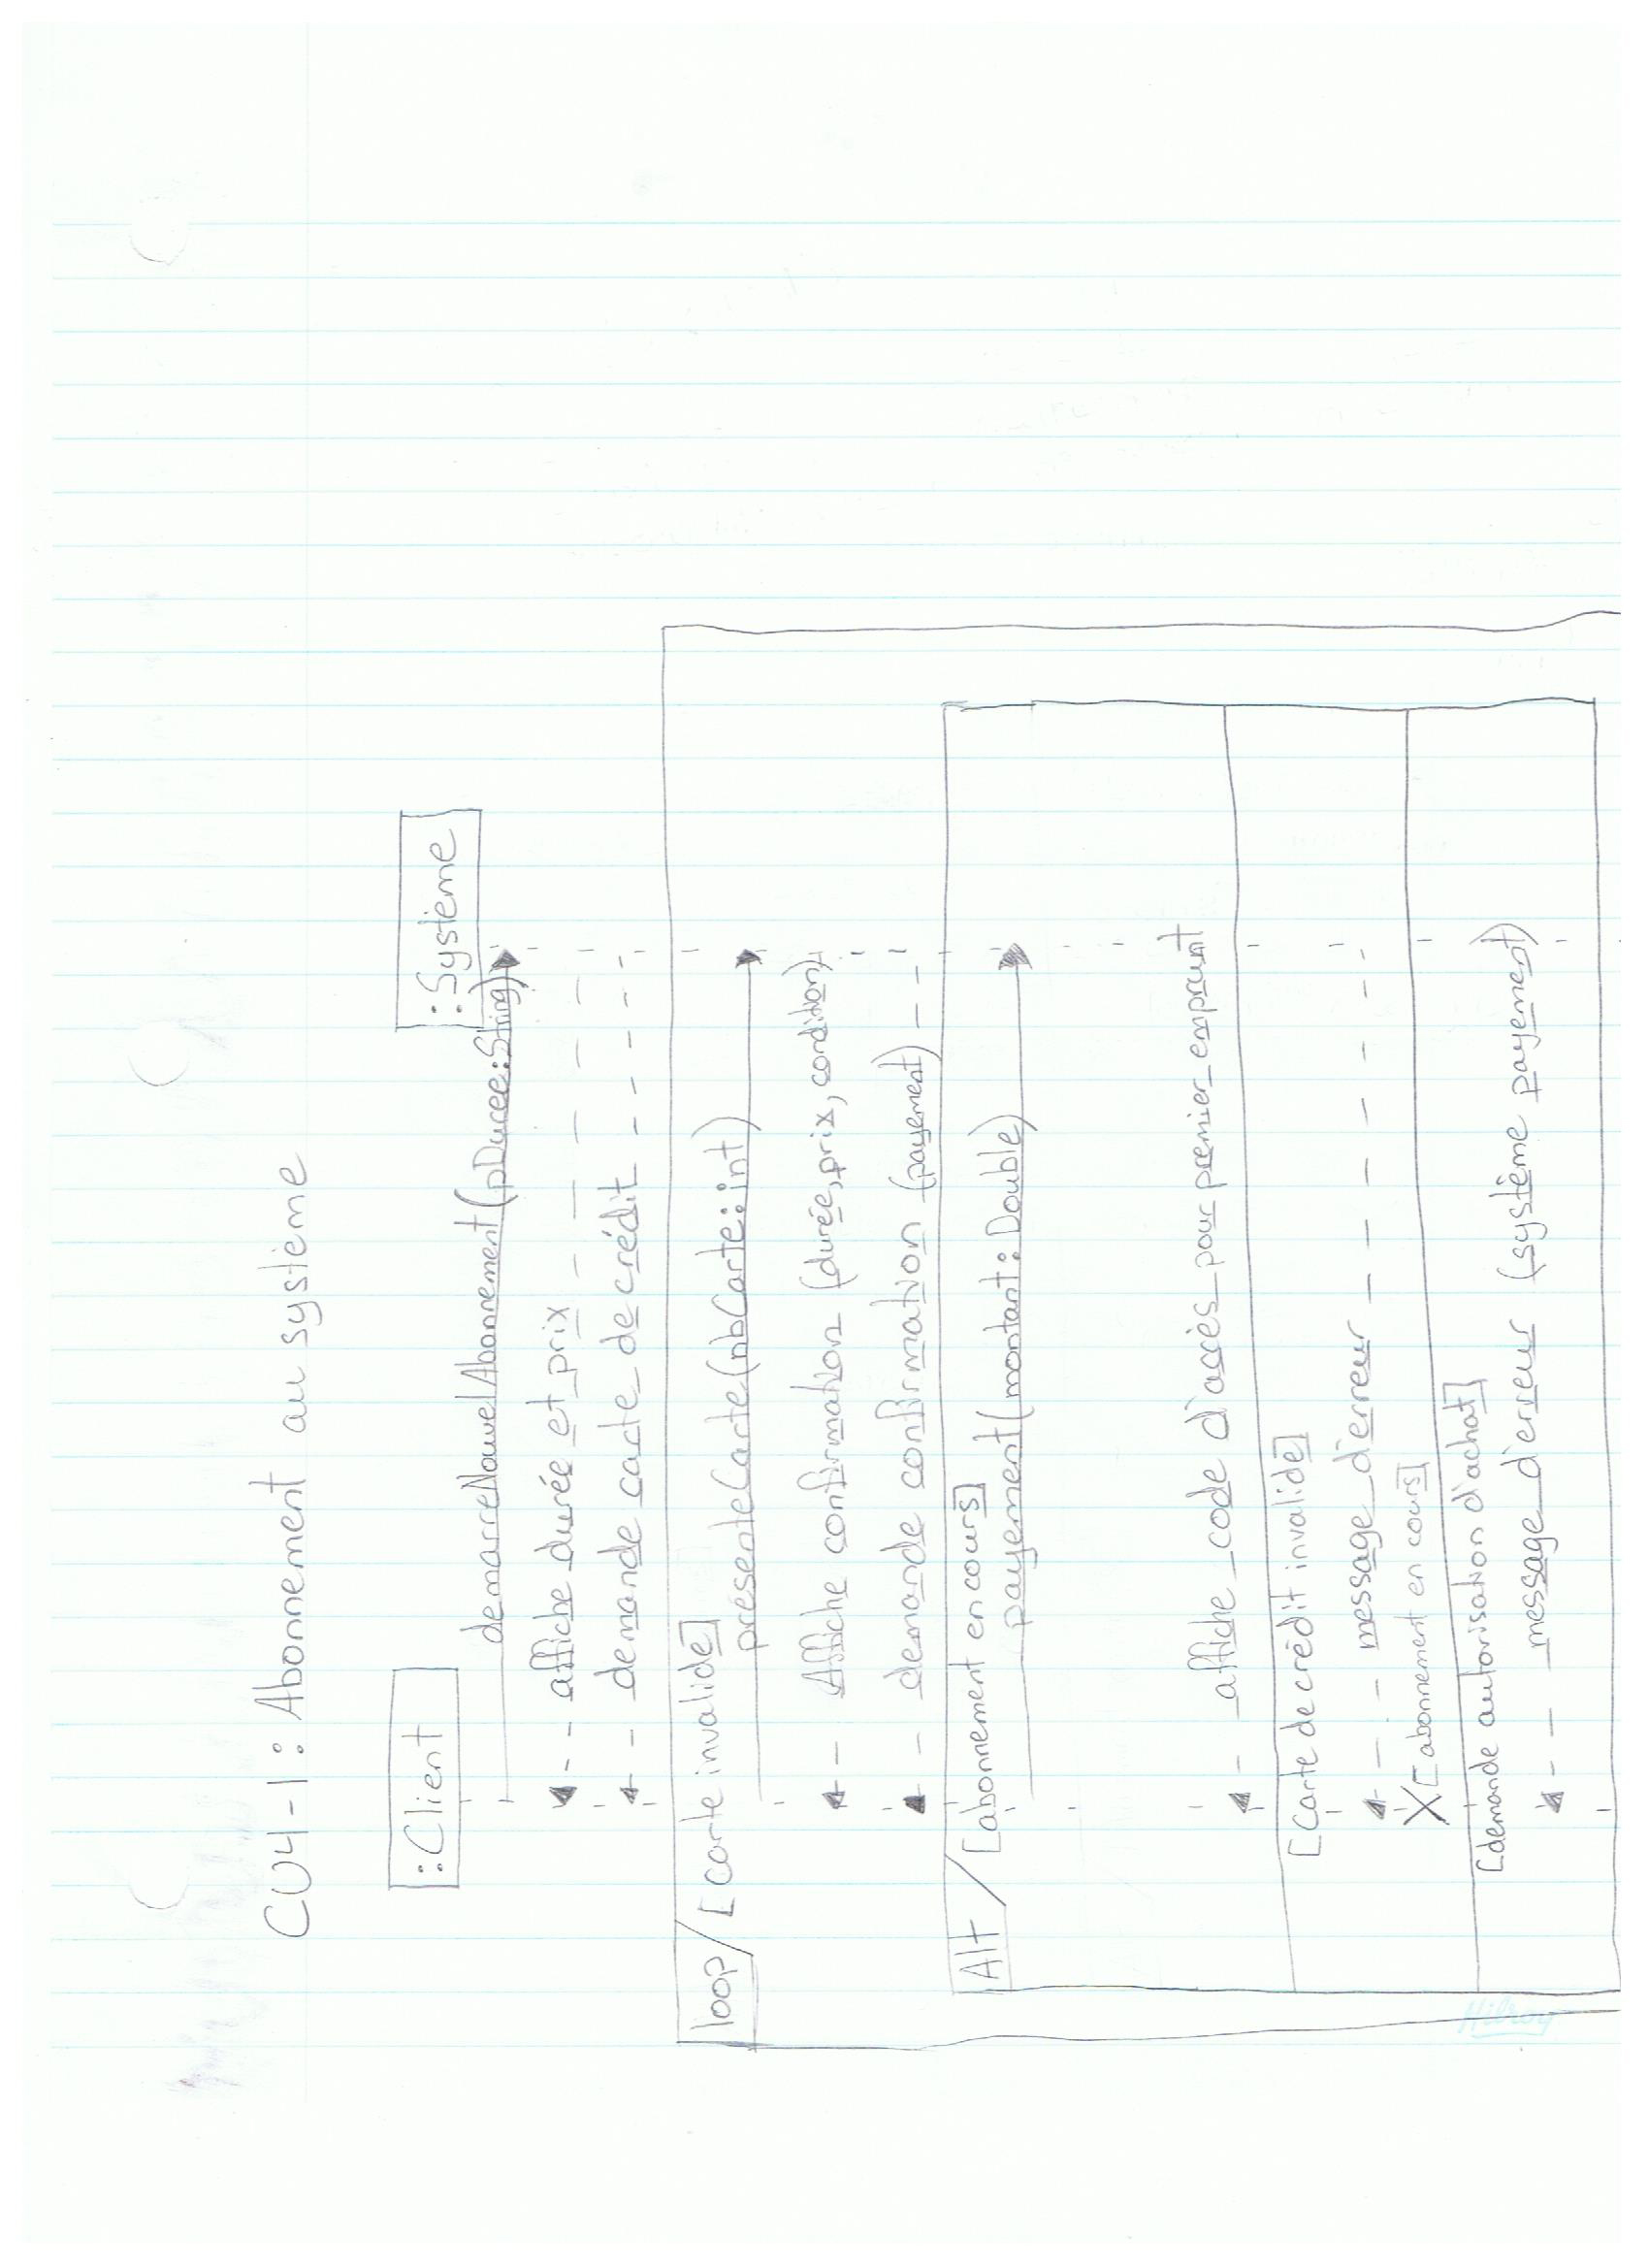 CU4-1: Abonnement au système
:Client
:Système
demarreNouvelAbonnement(pDuree:String)
affiche durée et prix
demande carte_de crédit
loop [carte invalide]
présenteCarte(nbCarte:int)
Affiche confirmation (durée, prix, condition)
demande confirmation (payement)
Alt [abonnement en cours]
payement(montant:Double)
affiche_code d'accès_pour_premier_emprunt
[Carte de crédit invalide]
message_d'erreur
X[abonnement en cours]
[demande autorisation d'achat]
message_d'erreur (système payement)
Hilroy